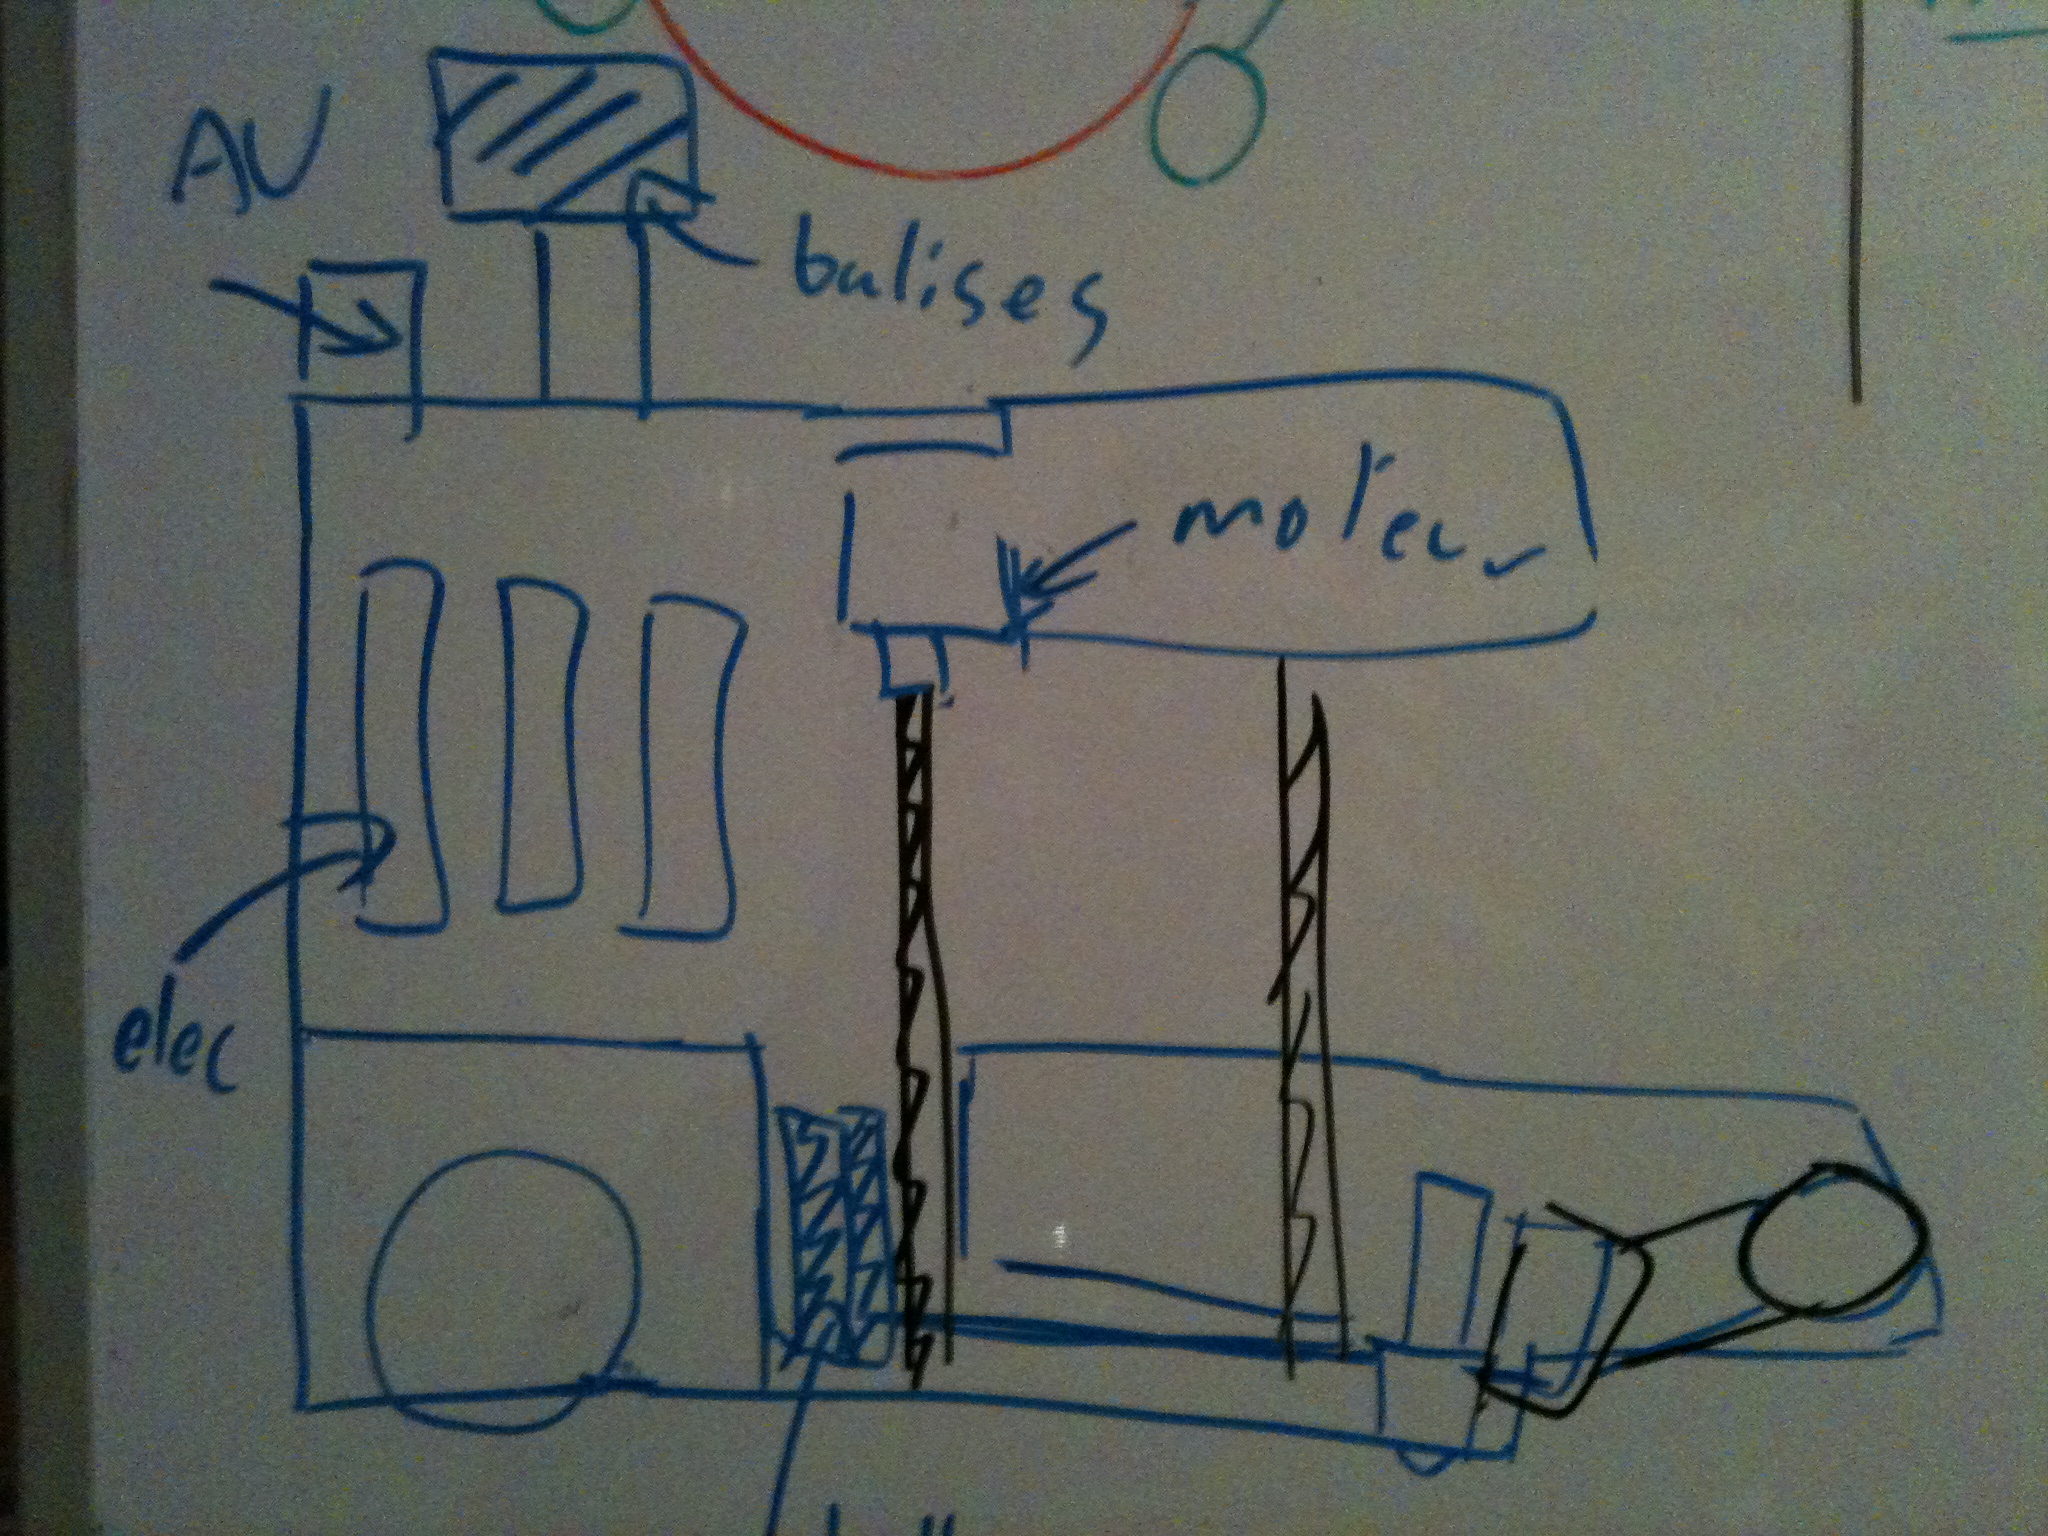 AU
balises
moteur
elec